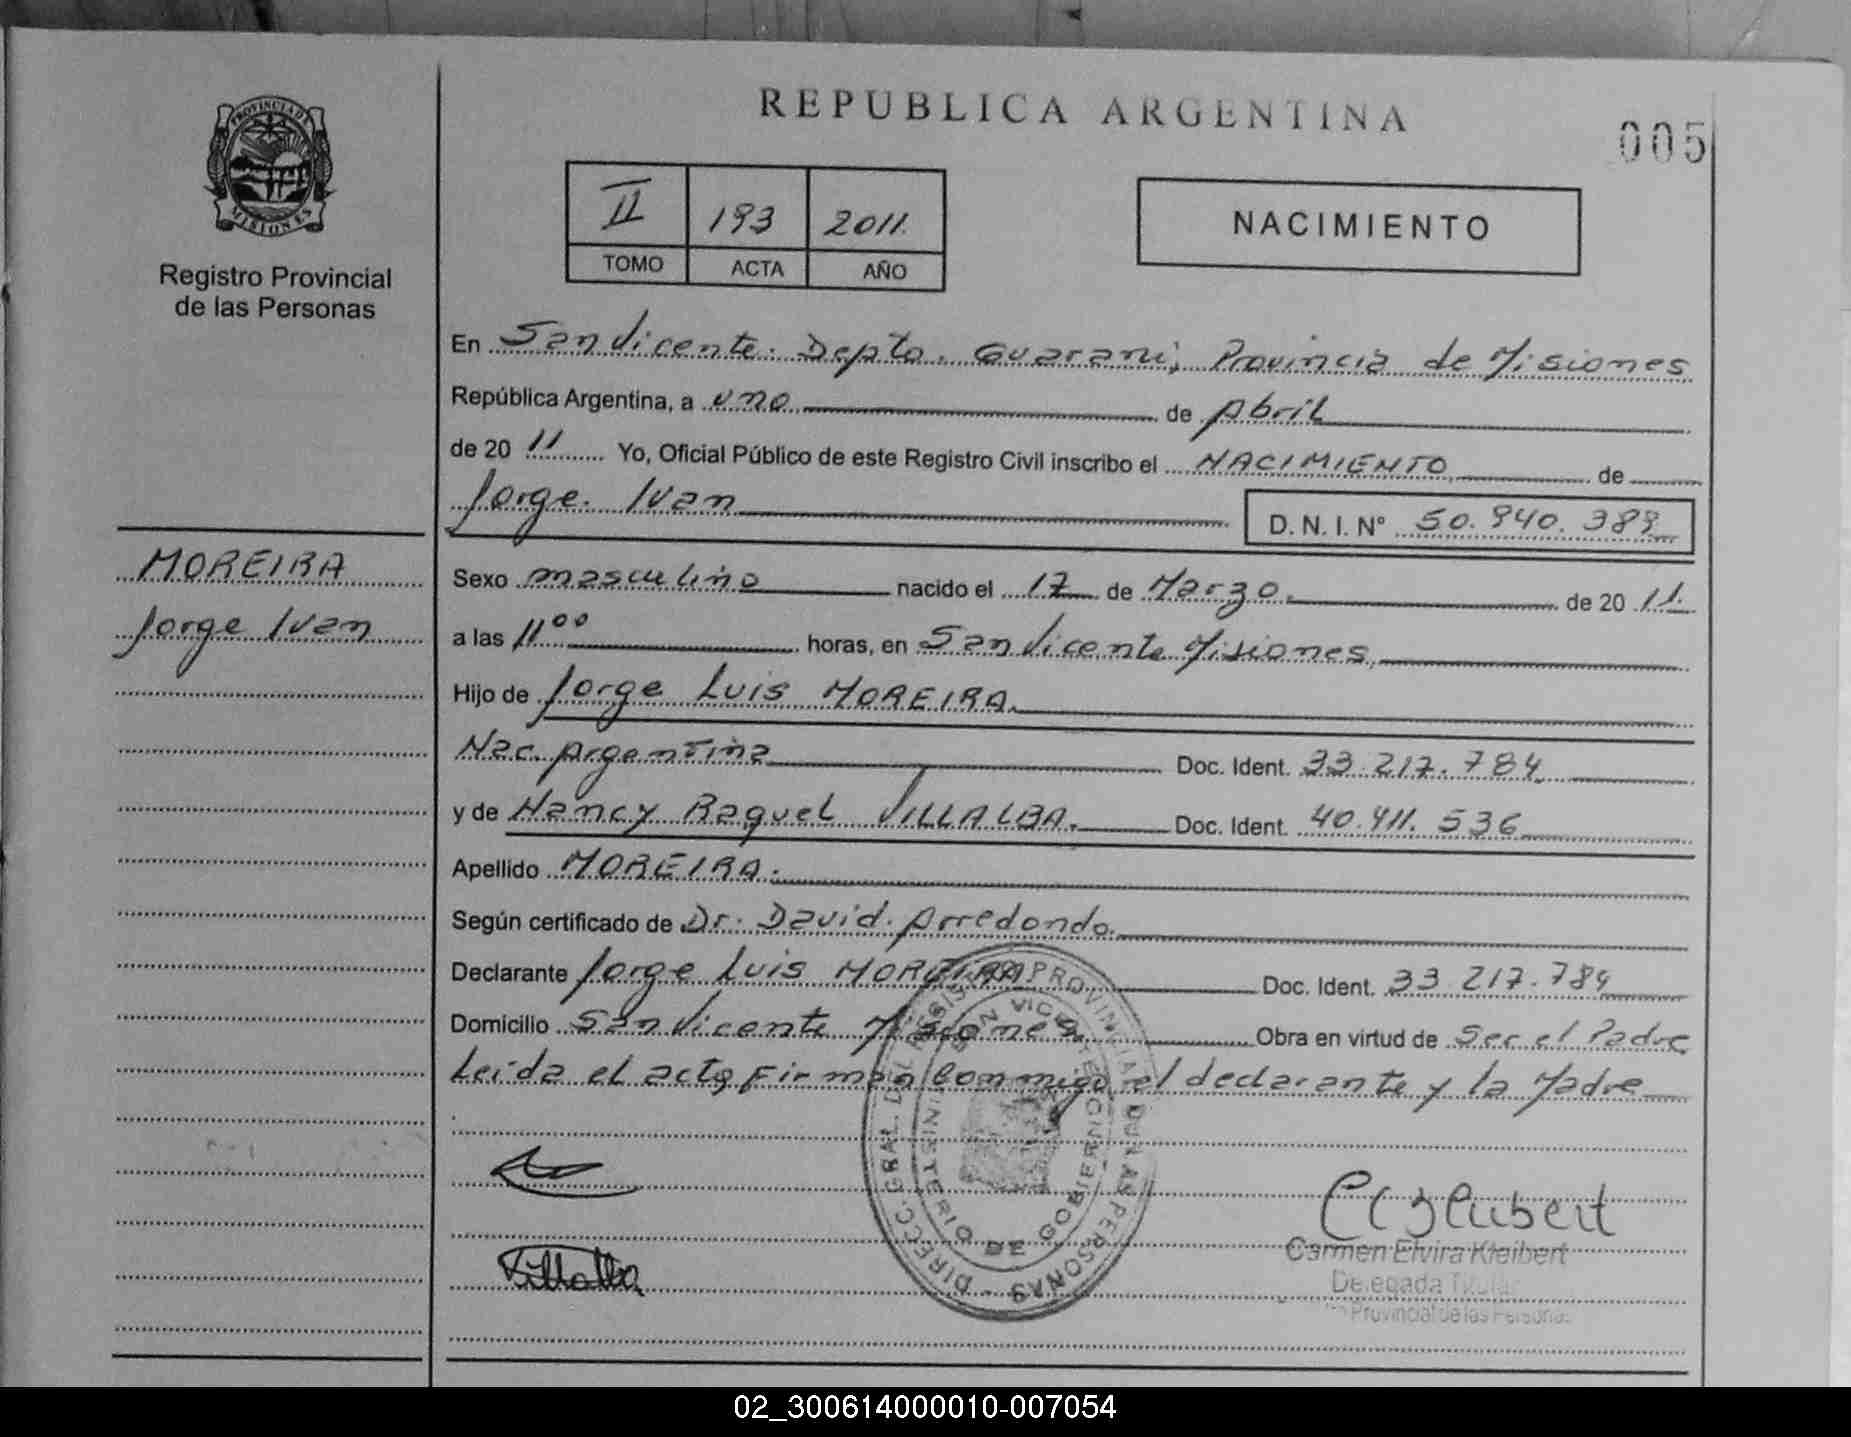 REPUBLICA ARGENTINA
005
PROVINCIA DE
MISIONES
Registro Provincial
de las Personas
II 193 2011
TOMO ACTA AÑO
NACIMIENTO
En San Vicente. Depto. Guarani, Provincia de Misiones
República Argentina, a uno de Abril
de 20 11 Yo, Oficial Público de este Registro Civil inscribo el NACIMIENTO de
Jorge Ivan D. N. I. Nº 50.940.389
MOREIRA
Jorge Ivan
Sexo masculino nacido el 17 de Marzo de 20 11.
a las 11 00 horas, en San Vicente Misiones,
Hijo de Jorge Luis MOREIRA.
Nac. Argentina Doc. Ident. 33.217.784
y de Nancy Raquel VILLALBA. Doc. Ident. 40.411.536
Apellido MOREIRA.
Según certificado de Dr. David Arredondo.
Declarante Jorge Luis MOREIRA Doc. Ident. 33.217.784
Domicilio San Vicente Misiones Obra en virtud de Ser el Padre
Leida el acta firman conmigo el declarante y la Madre
DIRECC. GRAL. DEL REGISTRO PROVINCIAL DE LAS PERSONAS
SAN VICENTE
MINISTERIO DE GOBIERNO
Villalba
Carmen Elvira Kleibert
Delegada Titular
Provincial de las Personas
02_300614000010-007054